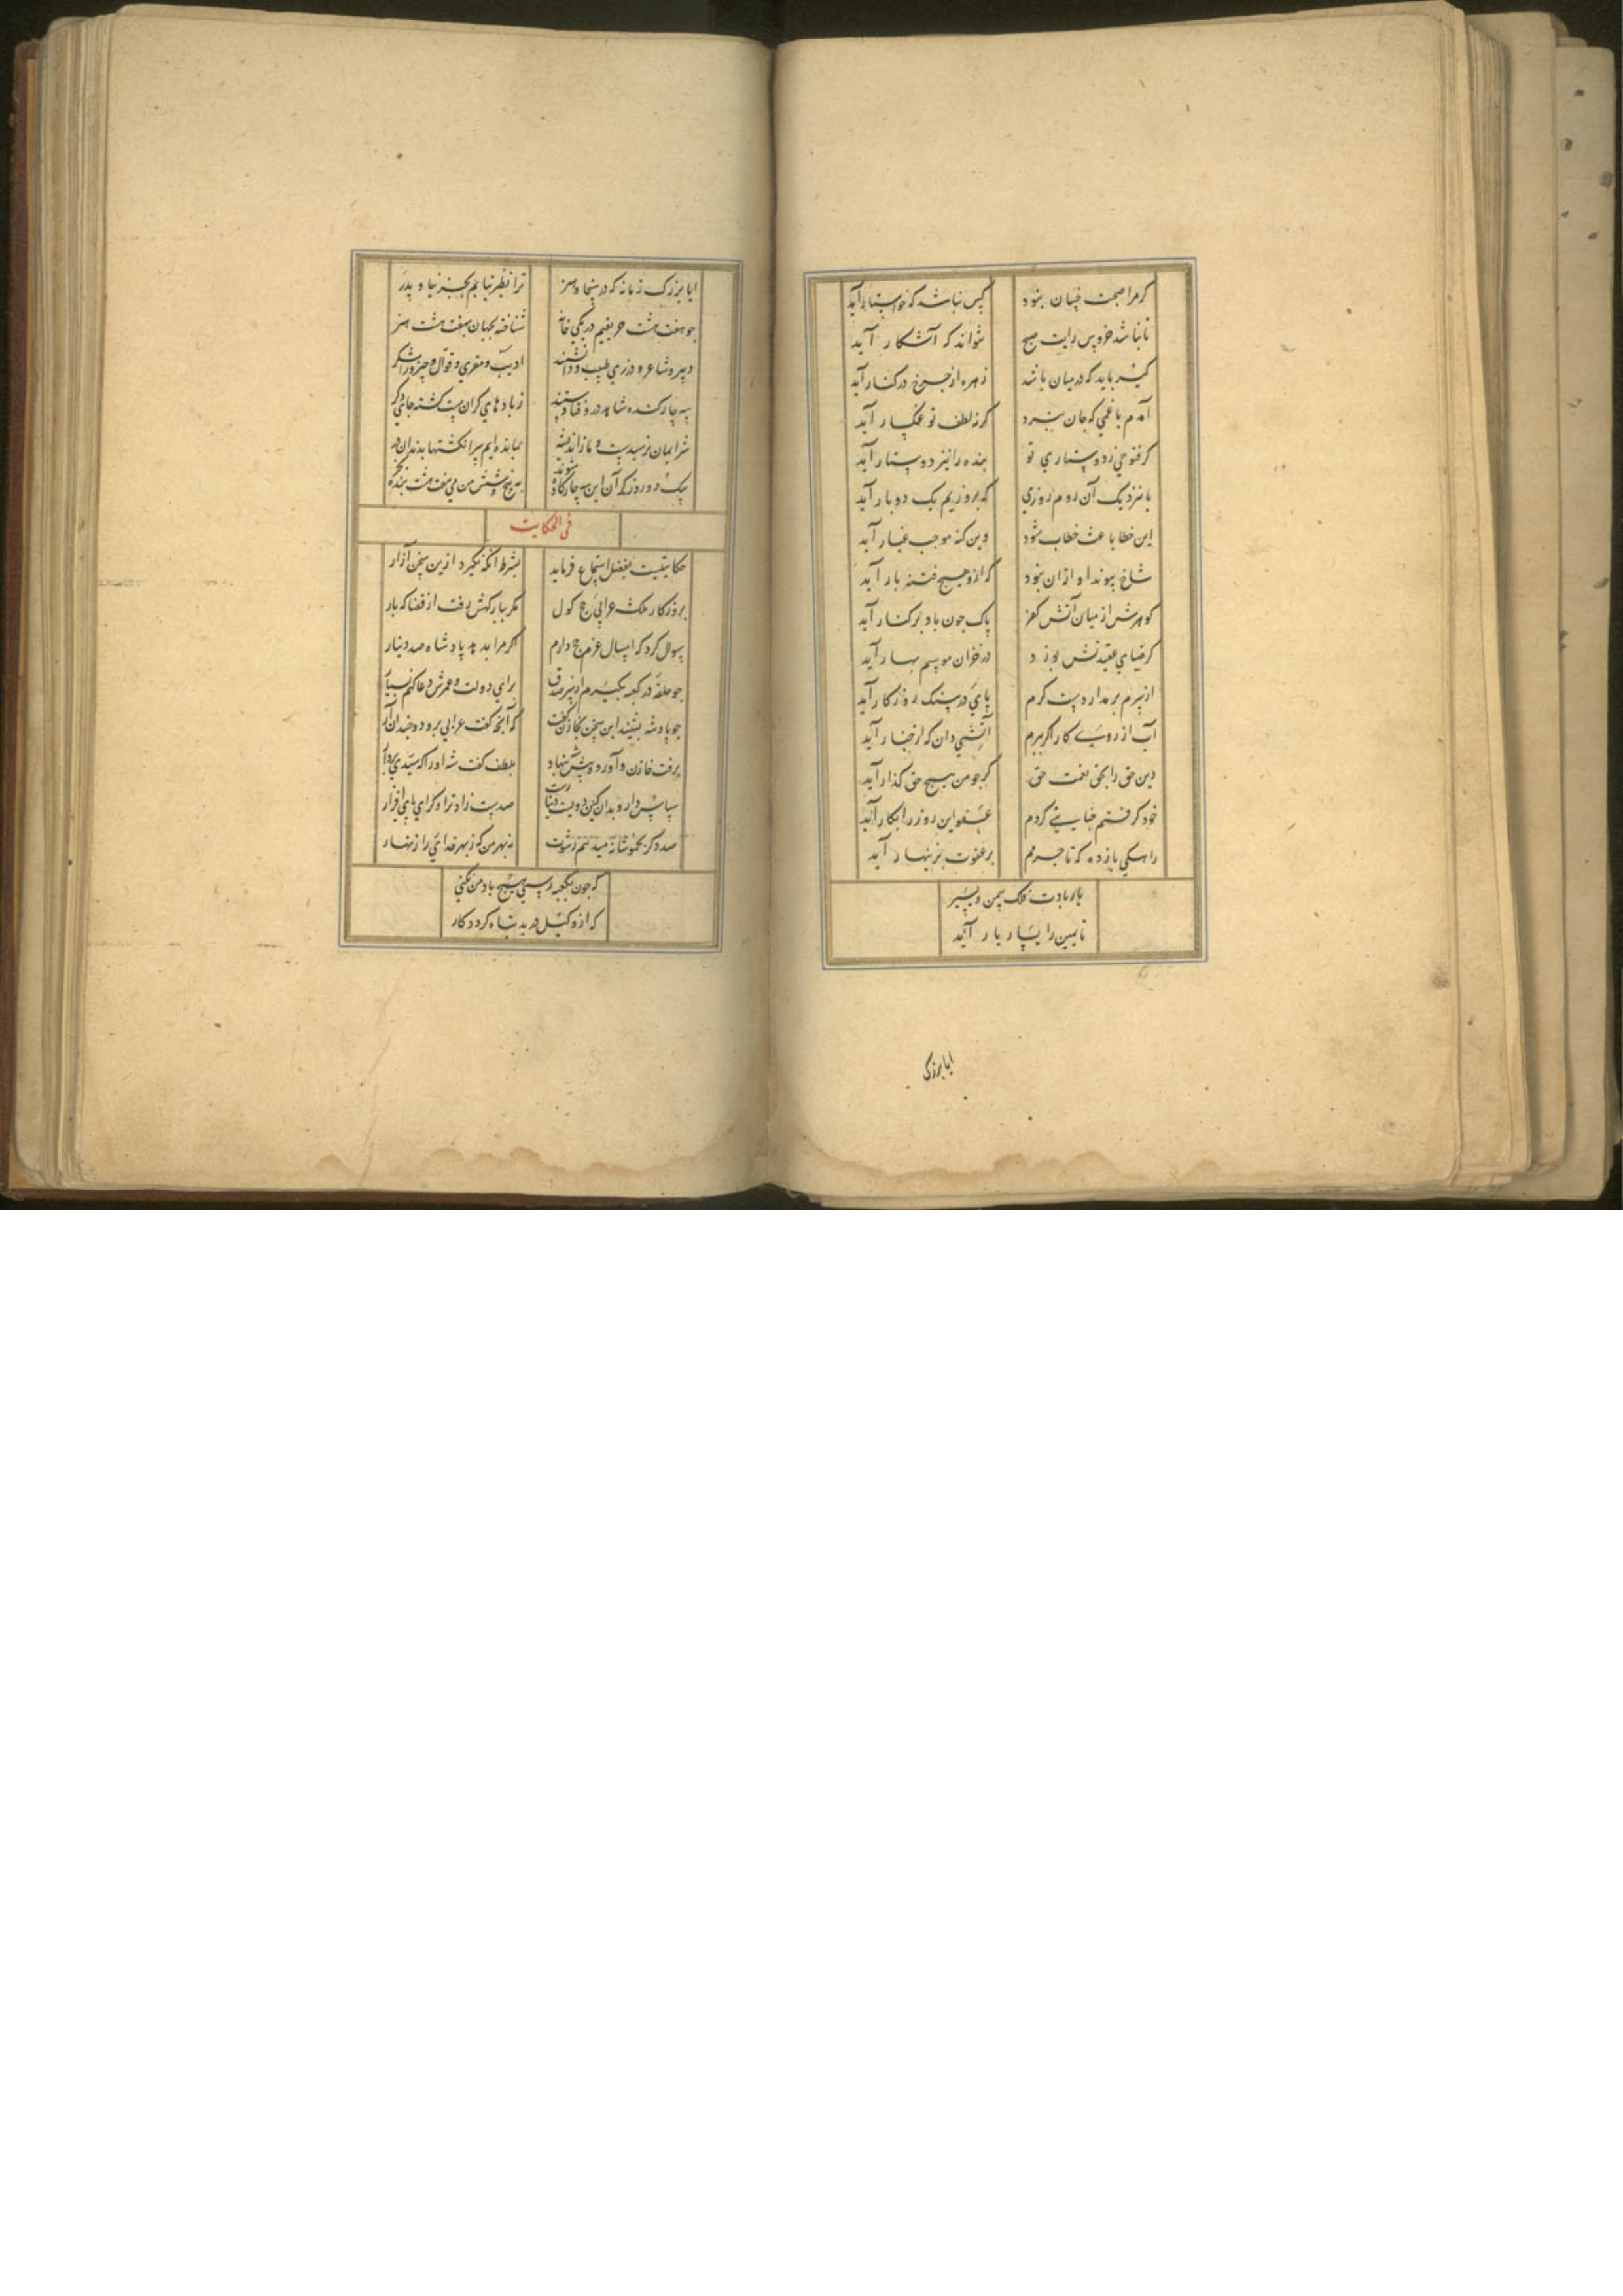 کرمرا صحبت خسان نبود کس نباشد که خواستار آید
تا نباشد خروس رایت صبح نتواند که آشکار آید
کیسه باید که در میان باشد زهره از چرخ در کنار آید
آمدم با غمی که جان نبرد کر ز لطف تو غمکسار آید
کر فتوحی ز دوستاری تو بنده را نیز دوستار آید
یا نزدیک آن روم روزی که بروزیم یک دو بار آید
این خطا باعث خطاب شود وین کنه موجب غبار آید
شاخ پیوند او ازان نبود که ازو هیچ فتنه بار آید
کوهرش از میان آتش کفر پاک چون باد بر کنار آید
کر ضیای عقیدتش بوزد در خزان موسم بهار آید
از برم بر مدار دست کرم پای در سنک روزکار آید
آب از روی کار اکر ببرم آتشی دان که از خیار آید
دین حق را بحق نعمت حق کر چو من هیچ حق کذار آید
خود کرفتم خیانتی کردم عفو این روز را بکار آید
راهکی بازده که تا جرمم بر عفوت بزینهار آید
یار بادت فلک بیمن و یسیر
تا یمین را یسار یار آید
ایا بزرک
ایا بزرک زمانه که در سخا و هنر ترا نظیر نیابم بجز نیا و پدر
چو هفت هشت حریفیم در یکی خانه شناخته بجهان بهفت هشت هنر
دبیر و شاعر و درزی طبیب و دانشمند ادیب و مقری و قوال و چیز
سه چار کنده شاهد در اوفتاد ستند ز بادهای کران مست کشته جای دکر
شرابمان نرسیدست و ما ز اندیشه بمانده ایم سر انکشتها بدندان در
یک دو روز که آن این سه چار کاده شوند به پنج و شش من می هفت هشت بنده بخر
فی الحکایت
حکایتیست بفضل استماع فرماید بشرط آنکه نکیرد ازین سخن آزار
بروزکار ملکشه عرابی حج کول مکر ببارکهش رفت از قضا که بار
سوال کرد که امسال عزم حج دارم اکر مرا بدهد پادشاه صد دینار
چو حلقه در کعبه بکیرم از سر صدق برای دولت و عمرش دعا کنم بسیار
چو پادشه بشنید این سخن بخازن کفت که آنچه کفت عرابی برو دو چندان آر
برفت خازن و آورد و پیش شه بنهاد بلطف کفت شه او را که سیدی بردار
سپاس دار و بدان کین دویست دینارست صدیست زاد ترا و کرای پای افزار
صد دکر بخموشانه میدهم رشوت نه بهر من که ز بهر خدای را زنهار
که چون بکعبه رسی هیچ یاد من نکنی
که از وکیل در بد تباه کردد کار